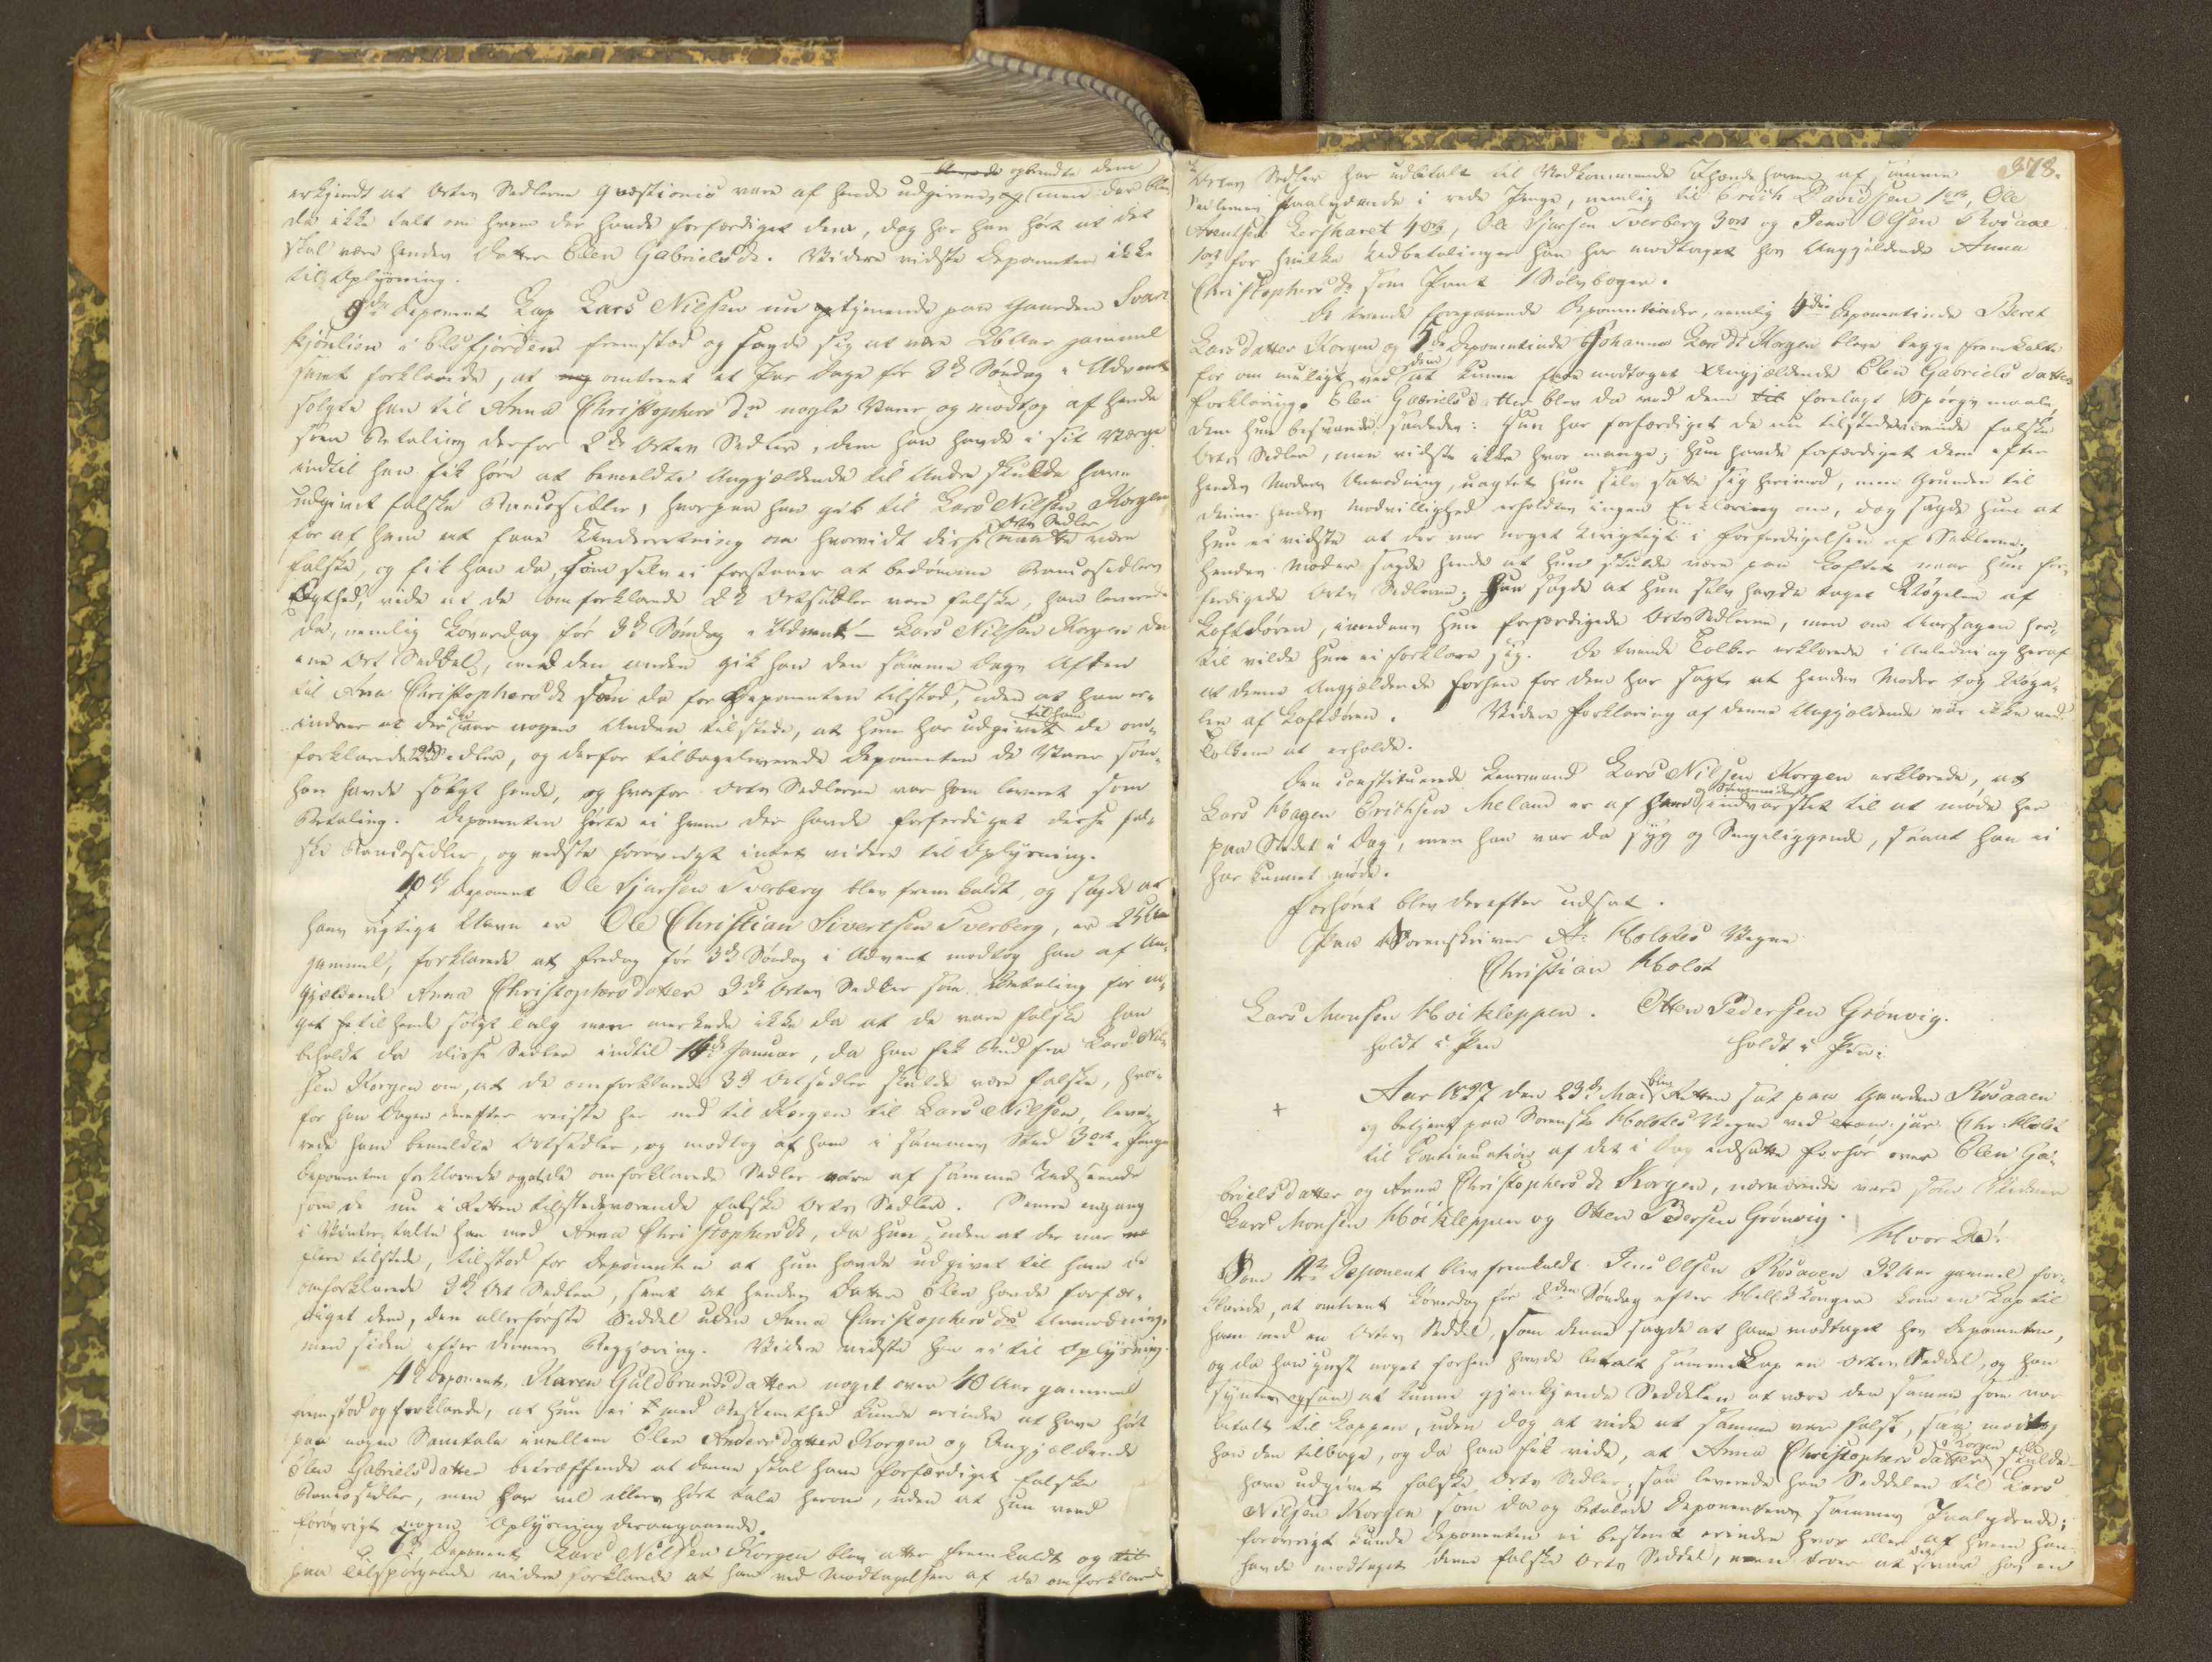 opkrævede dem
erkjendt at Orts Sedlerne qvæstionis vare af hende udgivne, men der blev
da ikke talt om hvem der havde forfærdiget dem, dog har han hørt at det
skal være hendes Datter Elen Gabrielsdr. Videre vidste Deponenten ikke
til Oplysning.
9de Deponent Lap Lars Nielsen nu tjenende paa Gaarden Svart
kjønlien i Elsfjorden fremstod og sagde sig at være 26 Aar gammel
samt forklarede, at omtrent et Par Dage før 3de Søndag i Advent
solgte han til Anna Christophersdr nogle Varer og modtog af hende
som Betaling derfor 2de Orters Sedler, dem han havde i sit Værge
indtil han fik høre at bemeldte Angjældende til Andre skulde have
udgivet falske Bancosedler, hvorpaa han gik til Lars Nilsen Korgen
for af ham at faae Underretning om hvorvidt disse Orts Sedler maatte være
falske, og fik han da, som selv ei forstaaer at bedømme Bancosedlers
Ægthed, vide at de omforklarede 2de Ortsedler vare falske, han leverede
da, nemlig Løverdag før 3de Søndag i Advent – Lars Nilsen Korgen den
ene Ort Seddel, med den anden gik han den samme Dags Aften
til Ana Christophersdr som da for Deponenten tilstod, uden at han er¬
indrer at der var nogen Anden tilstede, at hun har udgivet til ham de om¬
forklarede 2de Sedler, og derfor tilbageleverede Deponenten de Varer som
han havde solgt hende, og hvorfor Orts Sedlerne var ham leveret som
Betaling. Deponenten hørte ei hvem der havde forfærdiget disse fal¬
ske Bancosedler, og vidste forøvrigt intet videre til Oplysning.
10de Deponent Ole Sjursen Sverberg blev fremkaldt, og sagde at
hans rigtige Navn er Ole Christian Sivertsen Sverberg, er 25 Aar
gammel, forklarede at Fredag før 3de Søndag i Advent modtog han af An¬
gjældende Anna Christophersdatter 3de Orts Sedler som Betaling for no¬
get til hende solgt Talg men mærkede ikke da at de vare falske han
beholdt da disse Sedler indtil 14de Januar, da han fik Bud fra Lars Nil¬
sen Korgen om, at de omforklarede 3de Ortsedler skulde være falske, hvor¬
for han Dagen derefter reiste her ned til Korgen til Lars Nielsen, leve¬
rede ham bemeldte Ortsedler, og modtog af ham i sammes Sted 3 ort i Penge
Deponenten forklarede at de omforklarede Sedler vare af samme Udseende
som de nu i Retten tilstedeværende falske Orts Sedler. Senere engang
i Vinter, talte han med Anna Christophersdr, da hun, uden at der var
flere tilstede, tilstod for Deponenten at hun havde udgivet til ham de
omforklarede 3de Ort Sedler, samt at hendes Datter Elen havde forfær¬
diget dem, den allerførste Seddel uden Anna Christophersdrs Anmodning,
men siden efter dennes Begjæring. Videre vidste han ei til Oplysning.
11te Deponent, Karen Guldbrandsdatter noget over 40 Aar gammel
fremstod og forklarede, at hun ei med Bestemthed kunde erindre at have hørt
paa nogen Samtale imellem Elen Andersdatter Korgen og Angjældende
Elen Gabrielsdatter betræffende at denne skal have forfærdiget falske
Bancosedler, men har vel ellers hørt tale herom, uden at hun veed
forøvrigt nogen Oplysning derangaaende.
7de Deponent Lars Nilsen Korgen blev atter fremkaldt og
paa Tilspørgende videre forklarede at han ved Modtagelsen af de omforklarede
378.
Orts Sedler har udbetalt til Vedkommende Ihændehavere af samme
Sedlernes Paalydende i rede Penge, nemlig til Erich Davidsen 1 ort, Ole
Arentsen Lersharet 4 ort, Ole Sjursen Sverberg 3 ort og Jens Olsen Røsaae
1 ort for hvilke Udbetalinger han har modtaget hos Angjældende Anna
Christophersdr som Pant 1 Sølvbæger.
De tvende foregaaende Deponentinder, nemlig 4de Deponentinde Beret
Larsdatter Korgen og 5te Deponentinde Johanna Larsdr Korgen bleve begge fremkaldte
for om muligt ved dem at kunne faae modtaget Angjældende Elen Gabrielsdatters
Forklaring. Elen Gabrielsdatter blev da ved dem forelagt Spørgsmaale,
dem hun besvarede saaledes: hun har forfærdiget de nu tilstedeværende falske
Orts Sedler, men vidste ikke hvor mange; hun havde forfærdiget dem efter
hendes Moders Anmodning, uagtet hun selv satte sig herimod, men Grunden til
denne hendes Modvillighed erholdtes ingen Erklæring om, dog sagde hun at
hun ei vidste at der var noget Urigtigt i Forfærdigelsen af Sedlerne,
hendes Moder sagde hende at hun skulde være paa Loftet naar hun for¬
færdigede Orts Sedlerne; hun sagde at hun selv havde taget Nøgelen af
Loftdøren, imedens hun forfærdigede Orts Sedlerne, men om Aarsagen her¬
til vilde hun ei forklare sig. De tvende Tolker erklærede i Anledning heraf
at denne Angjældende forhen for dem har sagt at hendes Moder tog Nøge¬
len af Loftdøren. Videre Forklaring af denne Angjældende var ikke ved
Tolkene at erholde.
Den constituerede Lensmand Lars Nilsen Korgen erklærede, at
Lars Hagen Erichsen Meland er af ham og Stevnevidner indvarslet til at møde her
paa Stedet i Dag, men han var da syg og Sengeliggende, samt han ei
har kunnet møde.
Forhøret blev derefter udsat.
Paa Sorenskriver A: Holstes Vegne
Christian Holst
Lars Monsen Høikleppen. Otter Pedersen Grønvig.
holdt i Pen holdt i Pen
Aar 1827 den 23de Mai blev Retten sat paa Gaarden Røsaaen
+
og betjent paa Sorensk. Holstes Vegne ved exam: jur: Chr: Holst
til Continuation af det i Dag udsatte Forhør over Elen Ga¬
brielsdatter og Anna Christophersdr Korgen, nærværende vare som Vidner
Lars Monsen Høikleppen og Otter Pedersen Grønvig.
Hvor Da!
Som 12te Deponent blev fremkaldt Jens Olsen Røsaaen 32 Aar gammel for¬
klarede, at omtrent Løverdag før 2den Søndag efter Hell. 3 Konger kom en Lap til
ham med en Orts Seddel, som denne sagde at have modtaget hos Deponenten,
og da han just noget forhen havde betalt samme Lap en Orts Seddel, og han
syntes ogsaa at kunne gjenkjende Seddelen at være den samme som var
betalt til Lappen, uden dog at vide at samme var falsk, saa modtog
han den tilbage, og da han fik vide, at Anna Christophersdatter Korgen skulde
have udgivet falske Orts Sedler, saa leverede han Seddelen til Lars
Nilsen Korgen som da og betalede Deponenten sammes Paalydende;
forøvrigt kunde Deponenten ei bestemt erindre hvor eller af hvem han
havde modtaget denne falske Orts Seddel, men troer at det var hos en